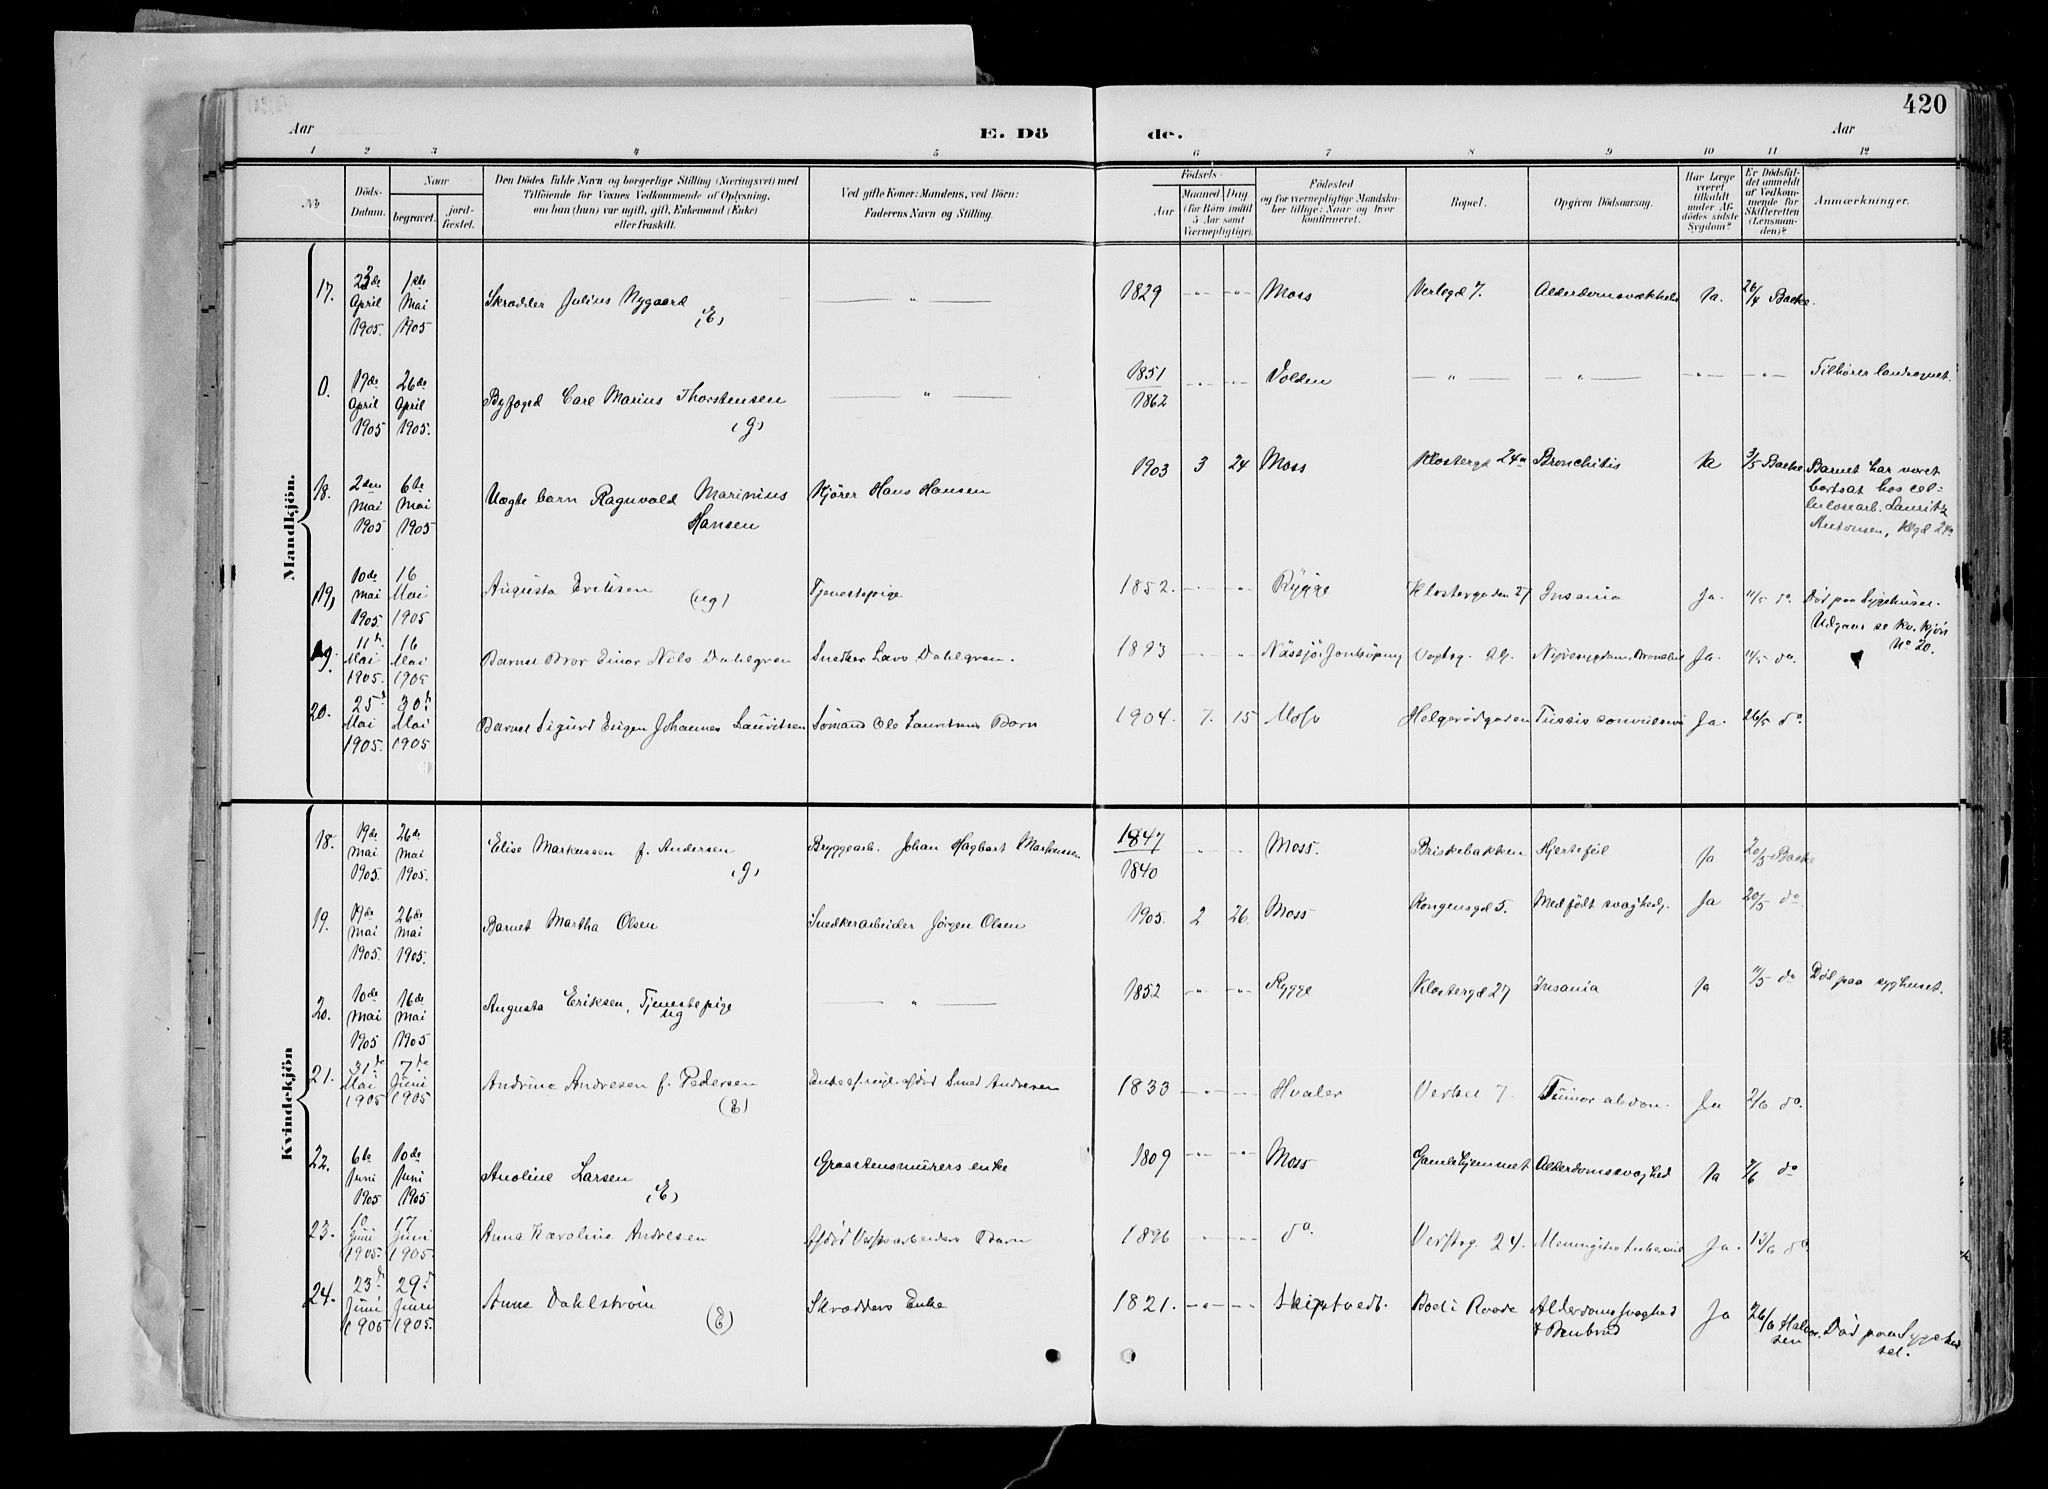 420
Aar
E. Dö
de.
Aar
1 2 3 4 5 6 7 8 9 10 11 12
No
Döds-
Datum.
Naar
begravet.
jord-
fæstet.
Den Dödes fulde Navn og borgerlige Stilling (Næringsvei) med
Tilföiende for Voxnes Vedkommende af Oplysning,
om han (hun) var ugift, gift, Enkemand (Enke)
eller fraskilt.
Ved gifte Koner: Mandens, ved Börn:
Faderens Navn og Stilling.
Födsels-
Aar
Maaned
Dag
(for Börn indtil
5 Aar samt
Værnepligtige).
Födested
og for værnepligtige Mandska-
ber tillige: Naar og hvor
konfirmeret.
Bopæl.
Opgiven Dödsaarsag.
Har Læge
været
tilkaldt
under Af-
dödes sidste
Sygdom?
Er Dödsfal-
det anmeldt
af Vedkom-
mende for
Skifteretten
(Lensman-
den)?
Anmærkninger.
Mandkjön.
17. 23de April 1905. 1ste Mai 1905 Skrædder Julius Nygaard (E) — " — 1829 Moss Verlegd 7. Alderdomssvækkels Ja. 26/4 Backe.
0. 19de April 1905 26de April 1905. Byfoged Carl Marius Thorstensen (g) — " — 1851 1862 Volden — " — — " — Tilhører landsognet.
18. 2den Mai 1905 6te Mai 1905 Uægte barn Ragnvald Marinius Hansen Kjører Hans Hansen 1903 3 24 Moss Klostergd 24a Bronchitis Ja 3/5 Backe Barnet har været
bortsat hos cel-
lulosearb. Lauritz
Antonsen, Klgd 24a
19, 10de Mai 1905. 16 Mai 1905 Augusta Eriksen (ug) Tjenestepige 1852. Rygge Klostergaden 27 Insania Ja. 11/5 do. Død paa Sygehuset.
Udgaar se Kv. kjøn
No 20.
19. 11te Mai 1905. 16 Mai 1905 Barnet Bror Einar Nils Dahlgren Snedker Lars Dahlgren. 1893 Nässjö, Jonköping Vogtsg. Ja. 11/5 do.
20. 25de Mai 1905. 30te Mai 1905 Barnet Sigurd Eugen Johannes Lauritsen Sømand Ole Lauritsens Barn 1904. 7. 15 Moss Helgerødgaden Tussis convulsiva Ja. 26/5 do
Kvindekjön
18. 19de Mai 1905. 26de Mai 1905. Elise Markussen f. Andersen (g) Bryggearb. Johan Hagbart Markussen 1847 1840 Moss. Briskebakken Hjertefeil Ja 20/5 Backe
19. 19de Mai 1905. 26de Mai 1905. Barnet Martha Olsen Snedkerarbeider Jørgen Olsen 1905. 2 26. Moss Kongensgd 5. Medfødt svaghed. Ja 20/5 do
20. 10de Mai 1905 16de Mai 1905 Augusta Eriksen, Tjenestepige ug — " — 1852 Rygge Klostergd 27 Insania Ja 11/5 do Død paa syghuset.
21. 31te Mai 1905 7de Juni 1905 Andrine Andresen f. Pedersen (E) Enke ef. Smed Andresen 1833 Hvaler 7. Tumor abdom. Ja 2/6 do.
22. 6te Juni 1905 10de Juni 1905 Anoline Larsen (E) Graastensmurers enke 1809 Moss Gamlehjemmet Alderdomssvaghed Ja 7/6 do
23. 10 Juni 1905. 17 Juni 1905. Anna Karoline Andresen Afdød Værftsarbeiders Barn 1896 do. Verftsg. 24. Meningitis tubercul Ja. 13/6 do.
24. 23de Juni 1905 29de Juni 1905. Anne Dahlström (E) Skrædders Enke 1821. Skiptvedt. Bod i Raade Alderdomssvaghed
& Benbrud Ja 26/6 Halvor-
sen Død paa Sygehu-
set.